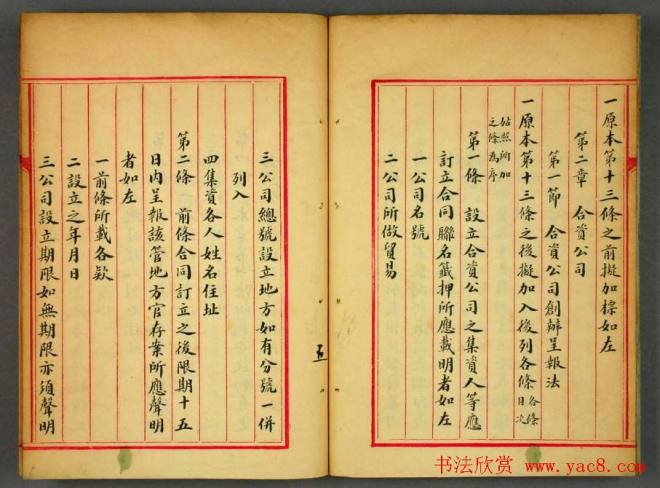 一原本第十三條之前擬加標如左
第二章 合資公司
第一節 合資公司創辦呈報法
一原本第十三條之後擬加入後列各條各條目次
姑照所加之條為序
第一條 設立合資公司之集資人等應
訂立合同聯名籤押所應載明者如左
一公司名號
二公司所做貿易
三公司總號設立地方如有分號一併
列入
四集資各人姓名住址
第二條 前條合同訂立之後限期十五
日內呈報該管地方官存案所應聲明
者如左
一前條所載各款
二設立之年月日
三公司設立期限如無期限亦須聲明
五
书法欣赏 www.yac8.com